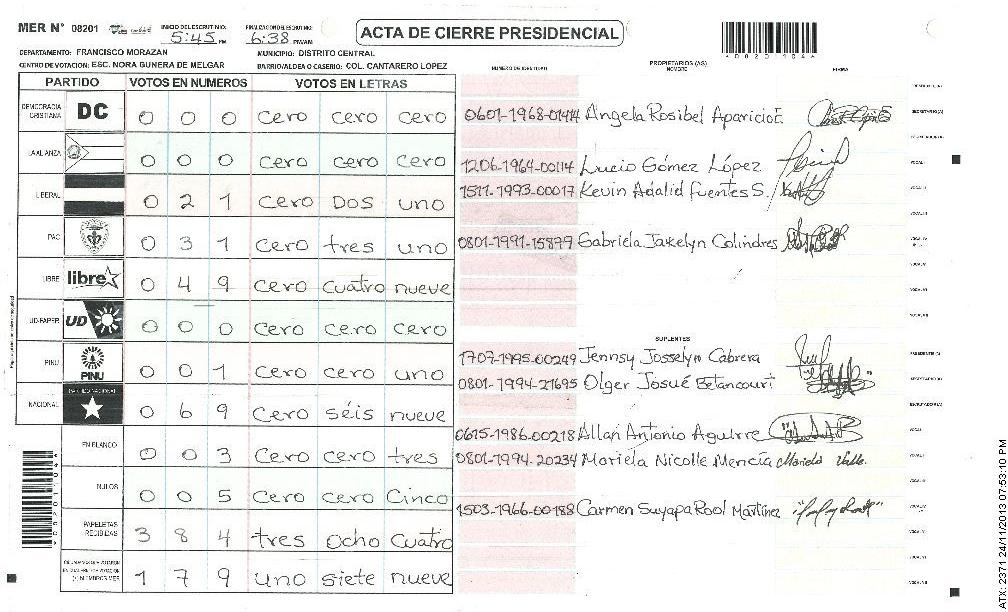 MER N° 08201 INICIO DEL ESCRUTINIO: 5:45 PM FINALIZACION DEL ESCRUTINIO: 6:38 PM/AM
ACTA DE CIERRE PRESIDENCIAL
*00201104*
DEPARTAMENTO: FRANCISCO MORAZAN MUNICIPIO: DISTRITO CENTRAL
CENTRO DE VOTACION: ESC. NORA GUNERA DE MELGAR BARRIO/ALDEA O CASERIO: COL. CANTARERO LOPEZ
PROPIETARIOS (AS)
NOMBRE FIRMA
PARTIDO VOTOS EN NUMEROS VOTOS EN LETRAS
DEMOCRACIA CRISTIANA DC 0 0 0 cero cero cero
LA ALIANZA 0 0 0 cero cero cero
LIBERAL 0 2 1 cero Dos uno
PAC 0 3 1 cero tres uno
LIBRE libre 0 4 9 cero cuatro nueve
UD-FAPER UD 0 0 0 cero cero cero
PINU PINU 0 0 1 cero cero uno
NACIONAL PARTIDO NACIONAL 0 6 9 cero séis nueve
EN BLANCO 0 0 3 cero cero tres
NULOS 0 0 5 cero cero Cinco
PAPELETAS RECIBIDAS 3 8 4 tres ocho cuatro
1 7 9 uno siete nueve
0601-1968-01414 Angela Rosibel Aparicio E.
1206-1964-00114 Lucio Gómez López
1511-1993-00017 Kevin Adalid Fuentes S.
0801-1991-15899 Gabriela Jakelyn Colindres
SUPLENTES
1707-1995-00249 Jennsy Josselyn Cabrera
0801-1994-21695 Olger Josué Betancourt
0615-1986-00218 Allan Antonio Aguirre
0801-1994-20234 Mariela Nicolle Mencía Mariela Valle.
1503-1966-00188 Carmen Suyapa Rool Martínez
ATX: 2371 24/11/2013 07:53:10 PM